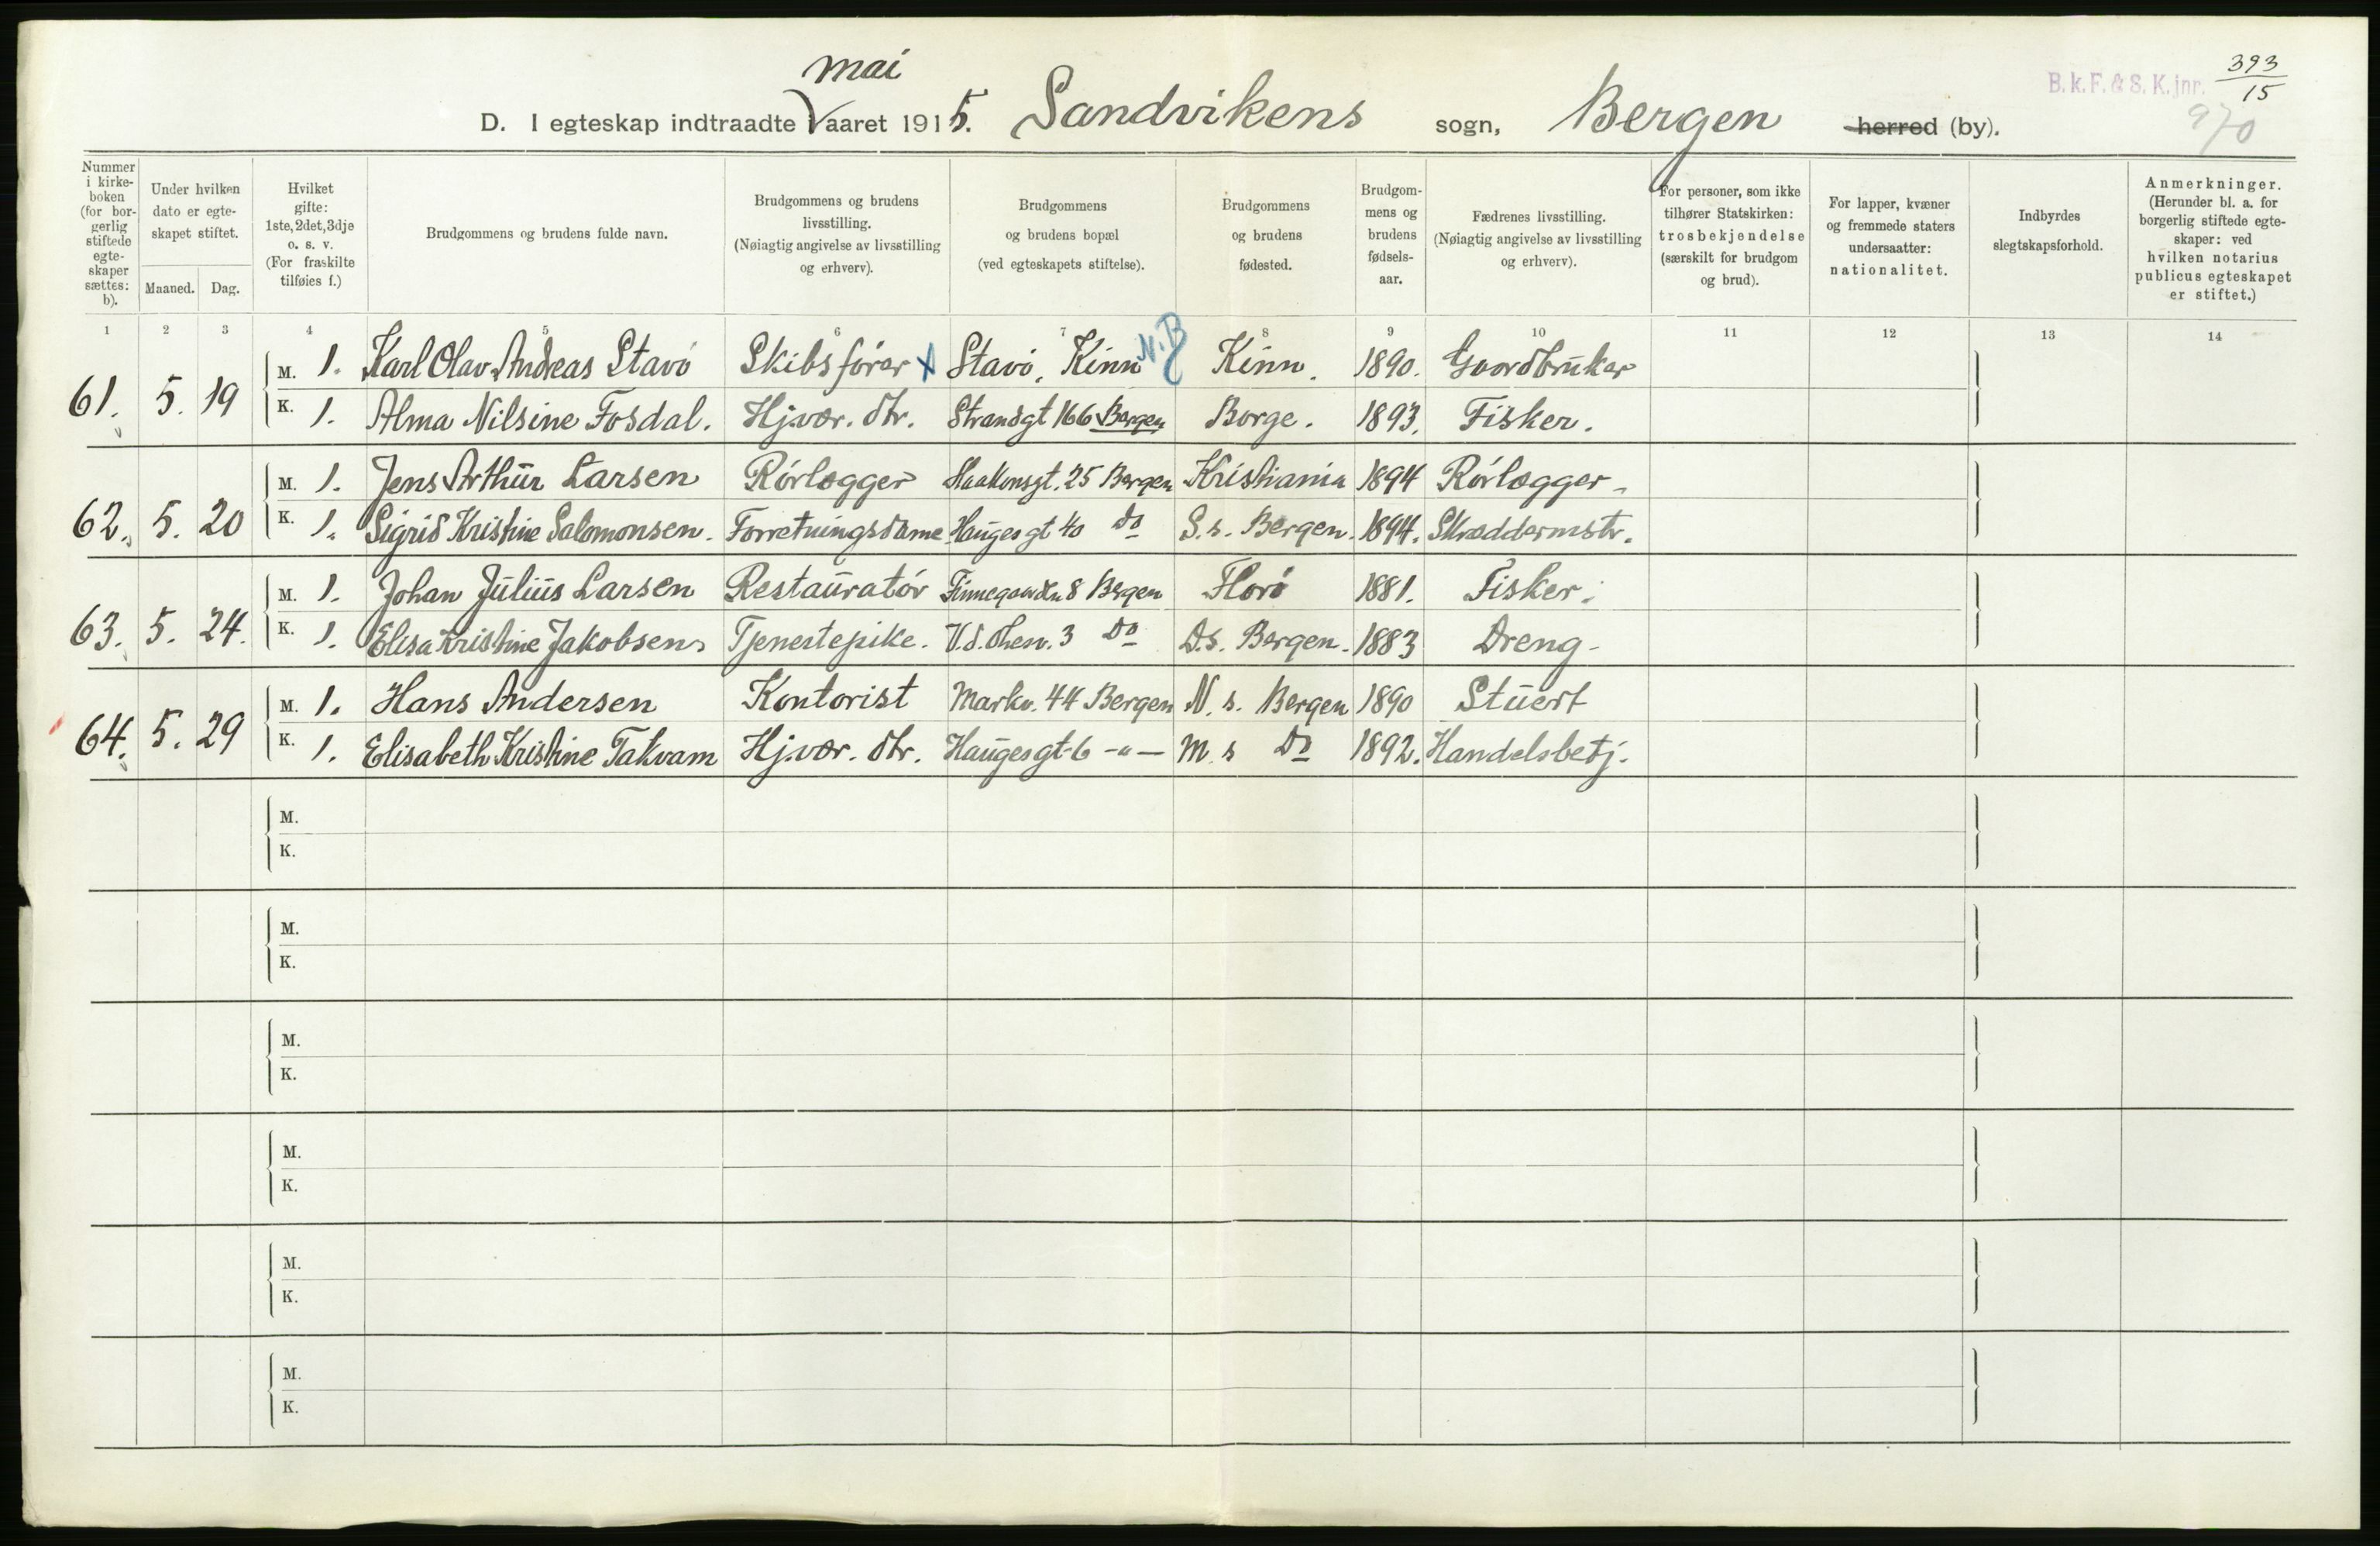 mai
D. I egteskap indtraadte i aaret 1915. Sandvikens sogn, Bergen herred (by).
B. k. F. & S. K. jnr. 393/15
970
Nummer i kirke-boken (for bor-gerlig stiftede egte-skaper sættes: b).
Under hvilken dato er egte-skapet stiftet.
Maaned. Dag.
Hvilket gifte: 1ste, 2det, 3dje o. s. v. (For fraskilte tilføies f.)
Brudgommens og brudens fulde navn.
Brudgommens og brudens livsstilling. (Nøiagtig angivelse av livsstilling og erhverv).
Brudgommens og brudens bopæl (ved egteskapets stiftelse).
Brudgommens og brudens fødested.
Brudgom-mens og brudens fødsels-aar.
Fædrenes livsstilling. (Nøiagtig angivelse av livsstilling og erhverv).
For personer, som ikke tilhører Statskirken: trosbekjendelse (særskilt for brudgom og brud).
For lapper, kvæner og fremmede staters undersaatter: nationalitet.
Indbyrdes slegtskapsforhold.
Anmerkninger. (Herunder bl. a. for borgerlig stiftede egte-skaper: ved hvilken notarius publicus egteskapet er stiftet.)
1 2 3 4 5 6 7 8 9 10 11 12 13 14
61. 5. 19 M. 1. Karl Olav Andreas Stavö Skibsförer x Stavö, Kinn N.B Kinn. 1890. Gaardbruker
K. 1. Alma Nilsine Fosdal. Hj.vær. dtr. Strandgt 166 Bergen Borge. 1893. Fisker.
62. 5. 20 M. 1. Jens Arthur Larsen Rörlægger Haakonsgt. 25 Bergen Kristiania 1894 Rörlægger
K. 1. Sigrid Kristine Salomonsen. Forretningsdame Haugesgt 40 do S. s. Bergen. 1894. Skræddermstr.
63. 5. 24. M. 1. Johan Julius Larsen Restauratör 8 Bergen Florö 1881. Fisker.
K. 1. Elisa Kristine Jakobsen Tjenestepike. 3 do D.s. Bergen. 1883 Dreng
64. 5. 29 M. 1. Hans Andersen Kontorist Markv. 44 Bergen N. s. Bergen 1890 Stuert
K. 1. Elisabeth Kristine Takvam Hj.vær. dtr. Haugesgt 6 -"- M. s do 1892. Handelsbetj.
M.
K.
M.
K.
M.
K.
M.
K.
M.
K.
M.
K.